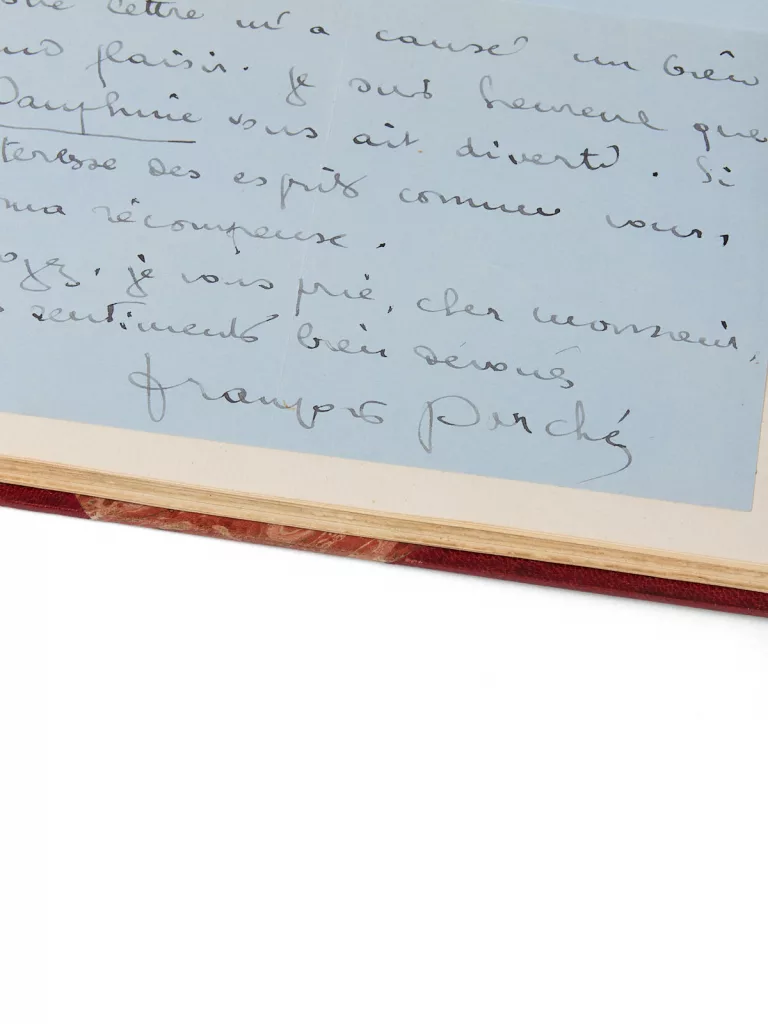 lettre m'a causé un bien
plaisir. Je suis heureux que
Dauphine vous ait diverti. Si
téresse des esprits comme vous,
ma récompense.
oyez, je vous prie, cher monsieur,
sentiments bien dévoués
François Porché